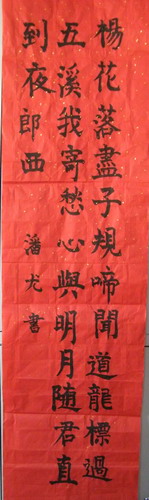 楊花落盡子規啼聞道龍標過
五溪我寄愁心與明月随君直
到夜郎西
潘尤書